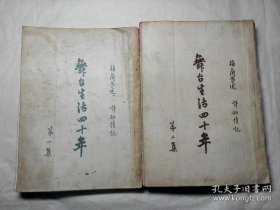 舞台生活四十年
梅兰芳述
许姬传记
第一集
舞台生活四十年
梅兰芳述
许姬传记
第一集